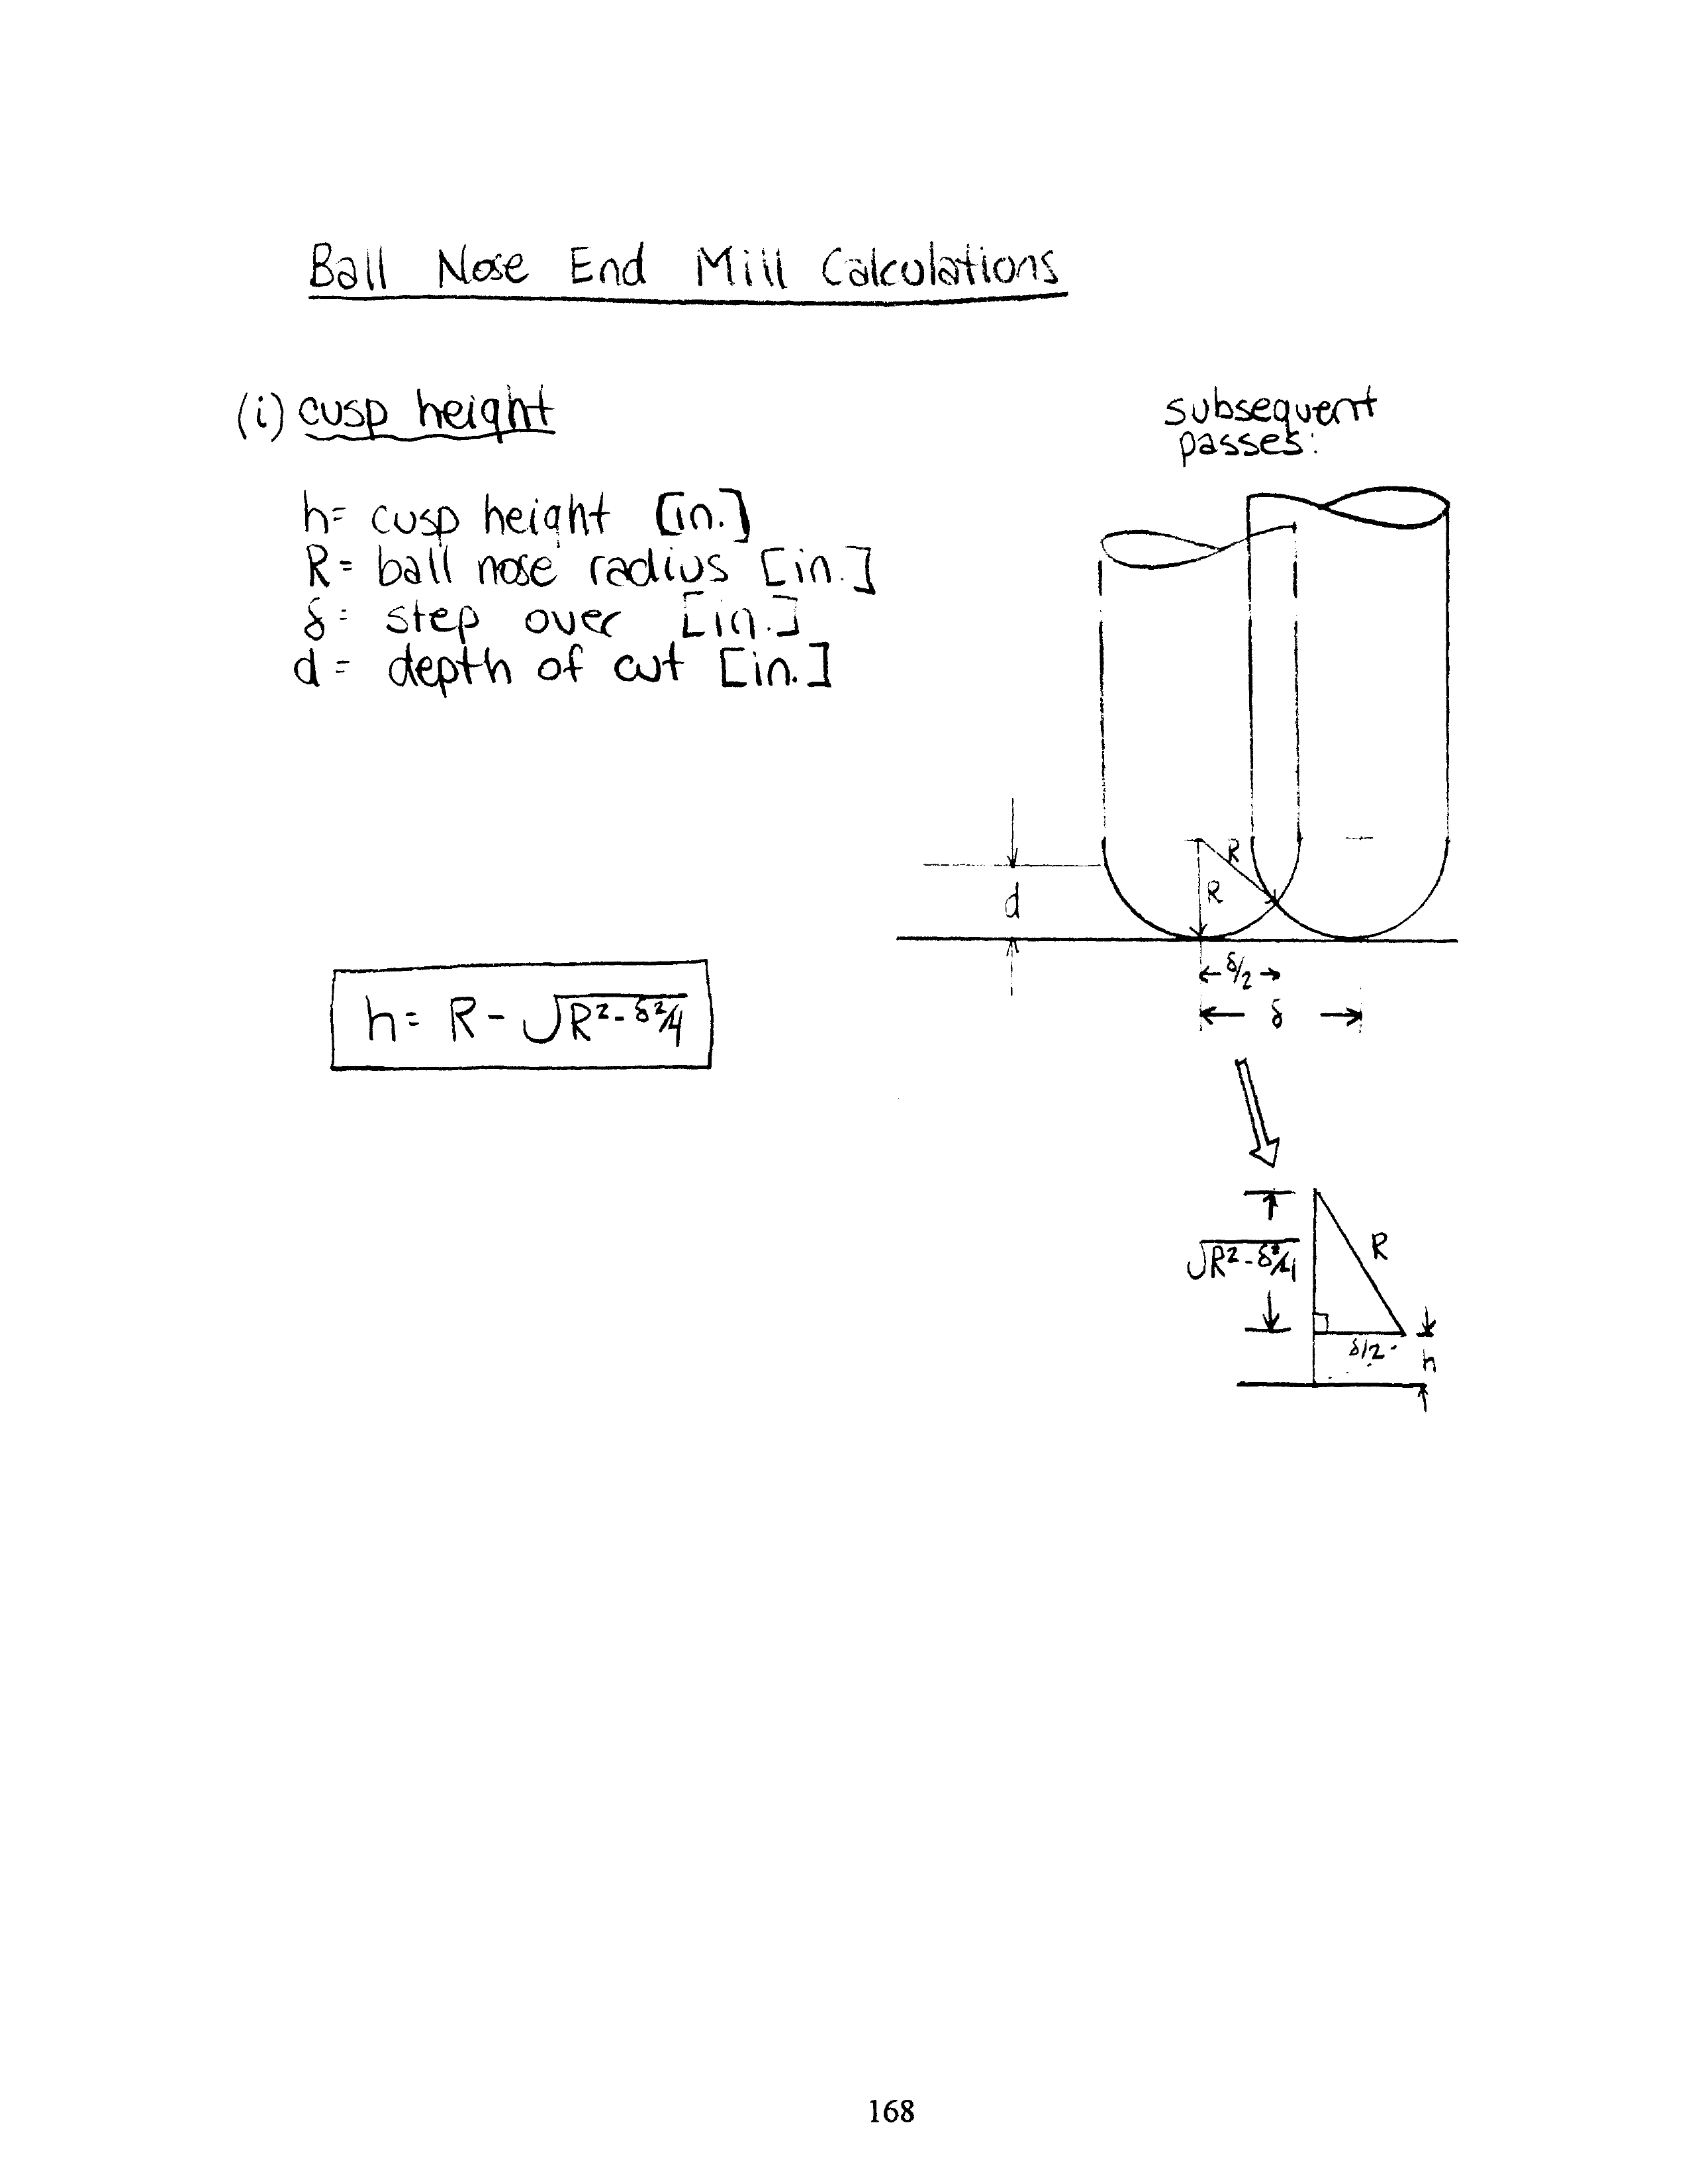 Ball Nose End Mill Calculations
(i) cusp height
h= cusp height [in.]
R= ball nose radius [in.]
δ= step over [in.]
d= depth of cut [in.]
h= R - √R²-δ²/4
subsequent
passes:
R
R
d
δ/2
δ
√R²-δ²/4
R
δ/2
h
168